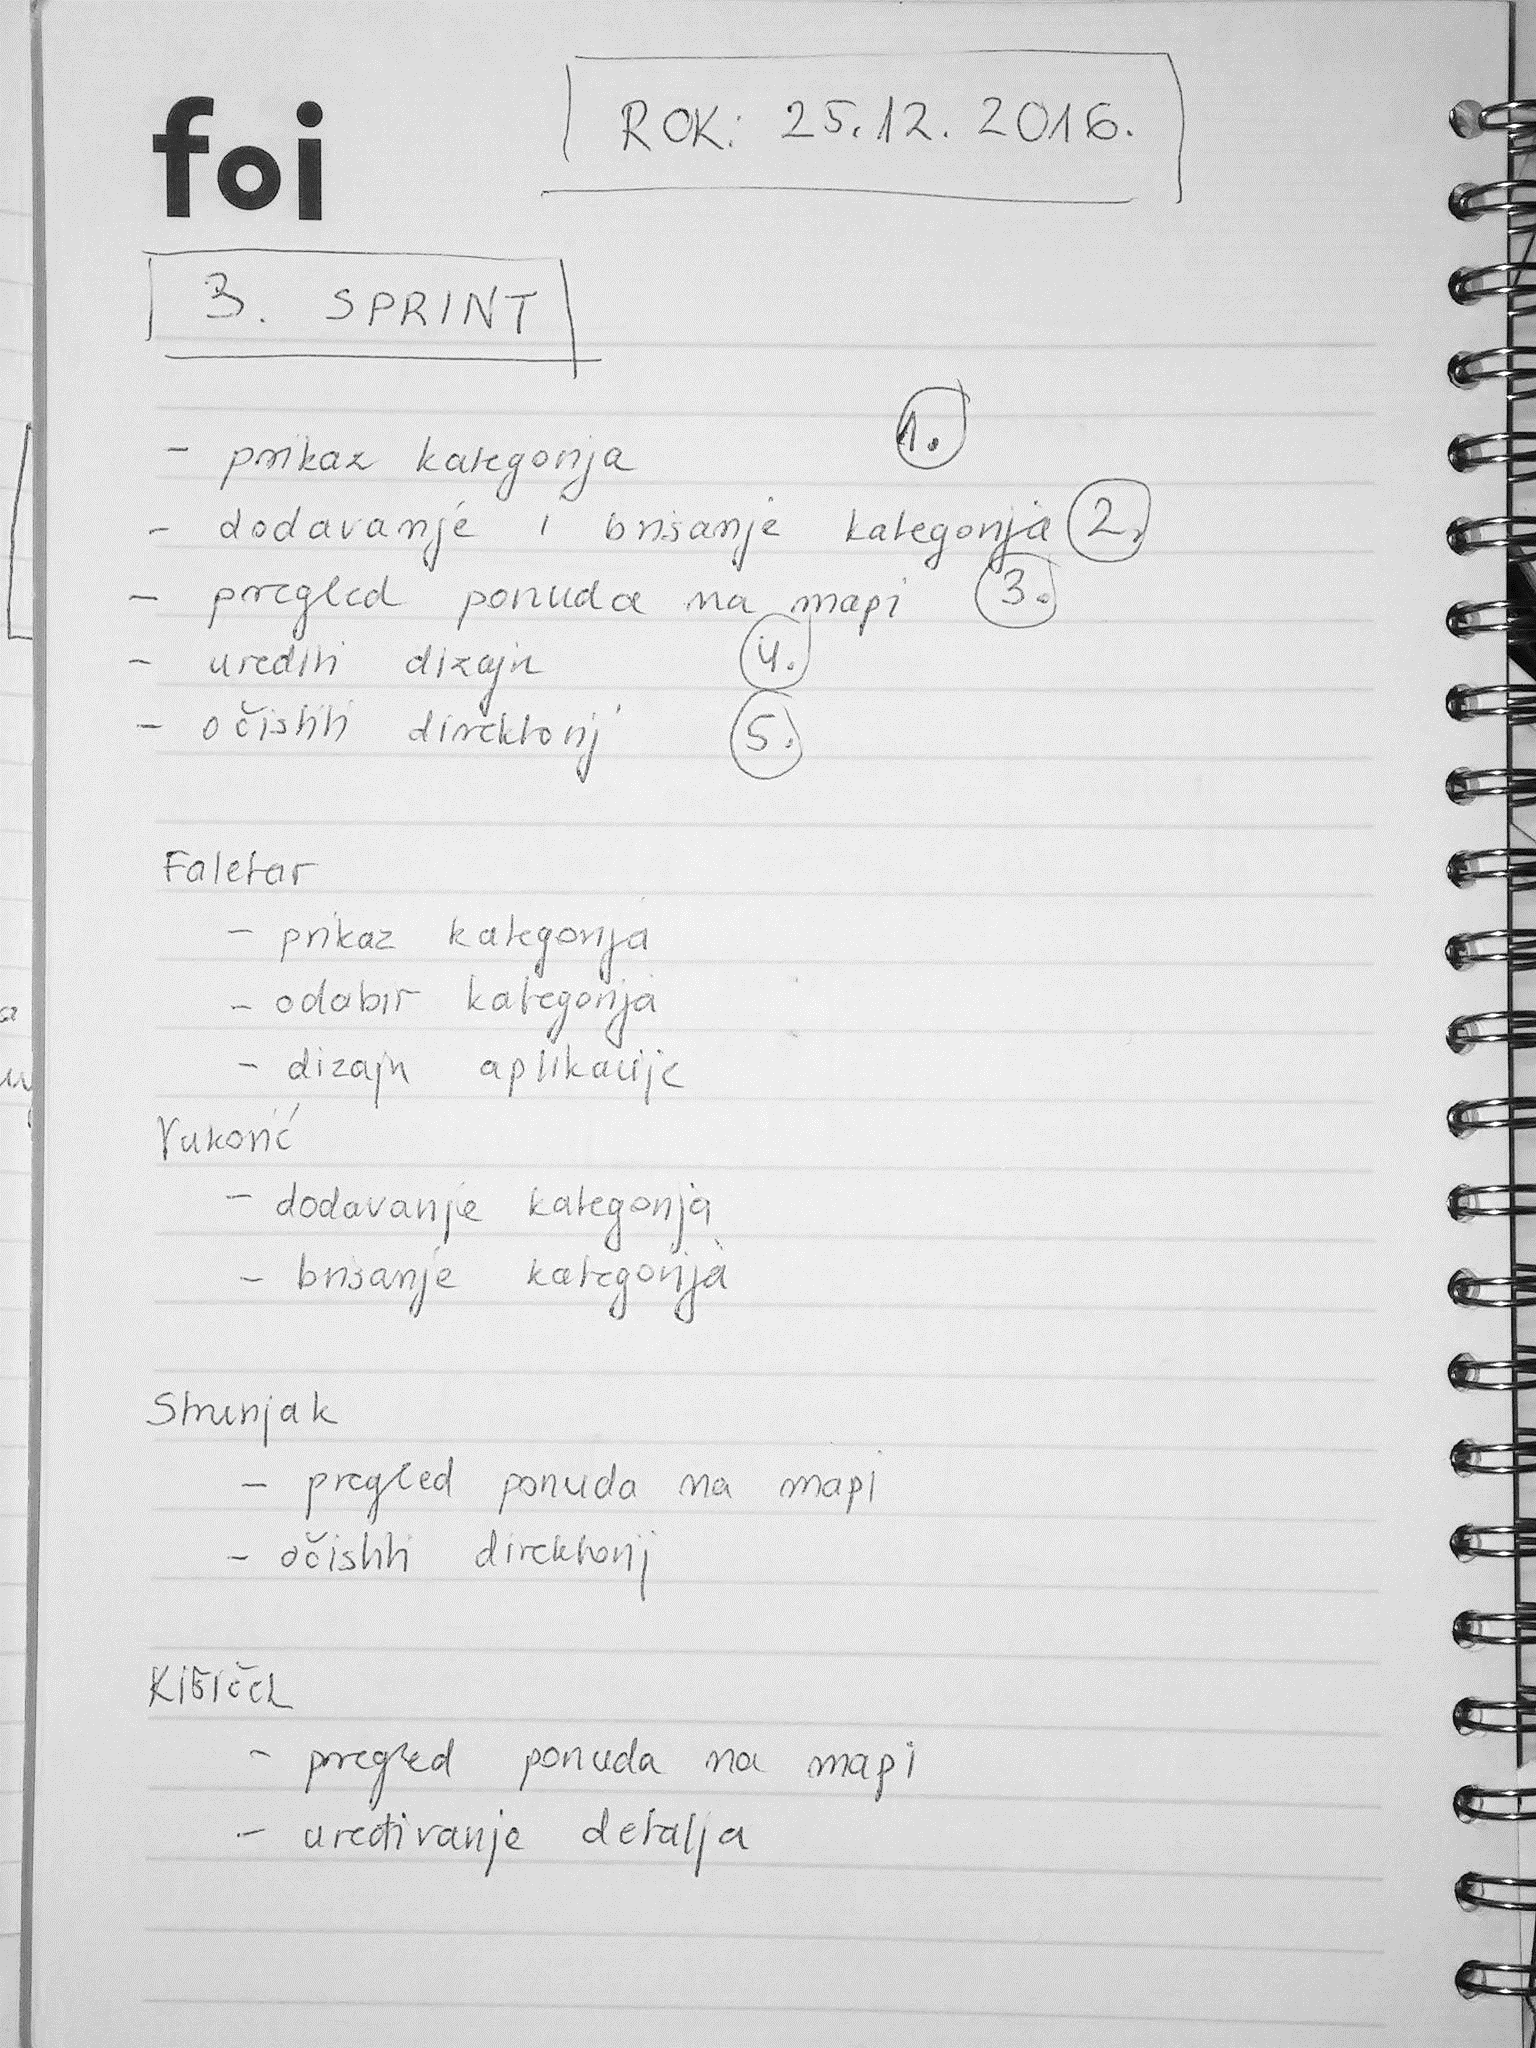 foi
ROK: 25.12.2016.
3. SPRINT
- prikaz kategorija 1.
- dodavanje i brisanje kategorija 2.
- pregled ponuda na mapi 3.
- urediti dizajn 4.
- očistiti direktorij 5.
Faletar
- prikaz kategorija
- odabir kategorija
- dizajn aplikacije
Vuković
- dodavanje kategorija
- brisanje kategorija
Strunjak
- pregled ponuda na mapi
- očistiti direktorij
- pregled ponuda na mapi
- uređivanje detalja